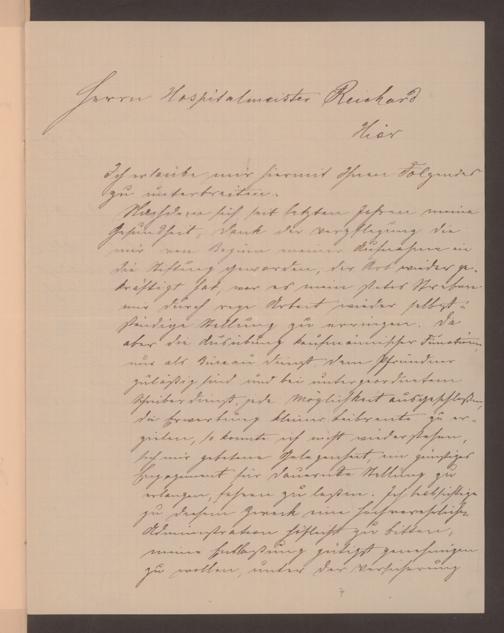 Herrn Hospitalmeister Reichard
Hier
Ich erlaube mir hiermit Ihnen Folgendes
zu unterbreiten.
Nachdem sich seit letzten Jahren meine
Gesundheit, Dank der Verpflegung die
mir von Beginn meiner Aufnahme in
die Stiftung geworden, der Art wieder ge-
kräftigt hat, war es mein stetes Streben
mir durch rege Arbeit wieder selbst-
ständige Stellung zu erringen. Da
aber die Ausübung kaufmännischer Funktion
nur als Bureau dienst dem Pfründner
zuläßig sind und bei untergeordnetem
Schreiberdienst jede Möglichkeit ausgeschlossen,
die Erwartung kleiner Leibrente zu er-
zielen, so konnte ich nicht widerstehen,
sich mir gebotene Gelegenheit, ein günstiges
Engagement für dauernde Stellung zu
erlangen, sehen zu lassen. Ich beabsichtige
zu diesem Zweck eine hochverehrliche
Administration höflichst zu bitten,
meine Entlassung gütigst genehmigen
zu wollen, unter der Versicherung